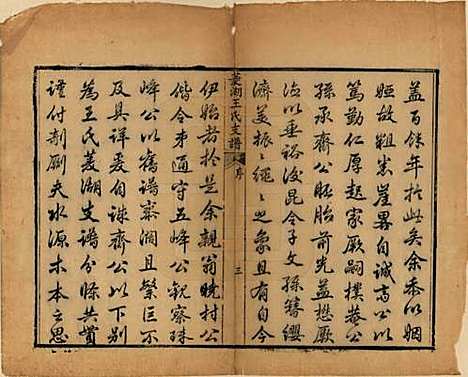 蓋百餘年於此矣余忝以姻
婭故粗悉崖畧自誠齋公以
篤勤仁厚起家厥嗣樸菴公
孫承齋公胚胎前光益懋厥
德以垂裕後昆今子文孫簪纓
濟美振振繩繩之象且有自今
菱湖王氏支譜 序 三
伊始者於是余親翁曉村公
偕令弟通守五峰公觀察珠
峰公以舊譜寥濶且繁巨不
及具詳爰自誠齋公以下別
為王氏菱湖支譜分條共貫
謹付剞劂夫水源木本之思